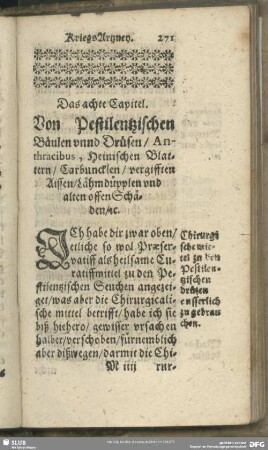 KriegsArtzney. 271
Das achte Capitel.
Von Pestilentzischen
Bäulen vnnd Drüsen / An-
thracibus, Heinischen Blat-
tern / Carbuncklen / vergifften
Aissen / Lähmdipplen vnd
alten offen Schä-
den / ec.
ICh habe dir zwar oben /
etliche so wol Præser-
vatiff als heilsame Cu-
ratiffmittel zu den Pe-
stilentzischen Seuchen angezei-
get / was aber die Chirurgicali-
sche mittel betrifft / habe ich sie
biß hiehero / gewisser vrsachen
halber / verschoben / fürnemblich
aber dißwegen / darmit die Chi-
M iiij rur-
Chirurgi
sche mit-
tel zu den
Pestilen-
tzischen
drüsen
eusserlich
zu gebrau
chen.
SLUB
DFG